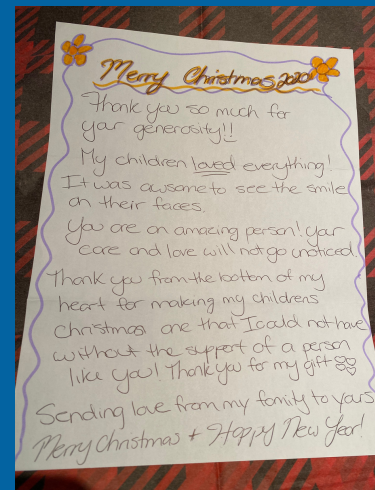 Merry Christmas 2020
Thank you so much for
your generosity!!
My children loved everything!
It was awsome to see the smile
on their faces.
You are an amazing person! Your
care and love will not go unoticed.
Thank you from the bottom of my
heart for making my childrens
Christmas one that I could not have
without the support of a person
like you! Thank you for my gift
Sending love from my family to yours
Merry Christmas + Happy New Year!